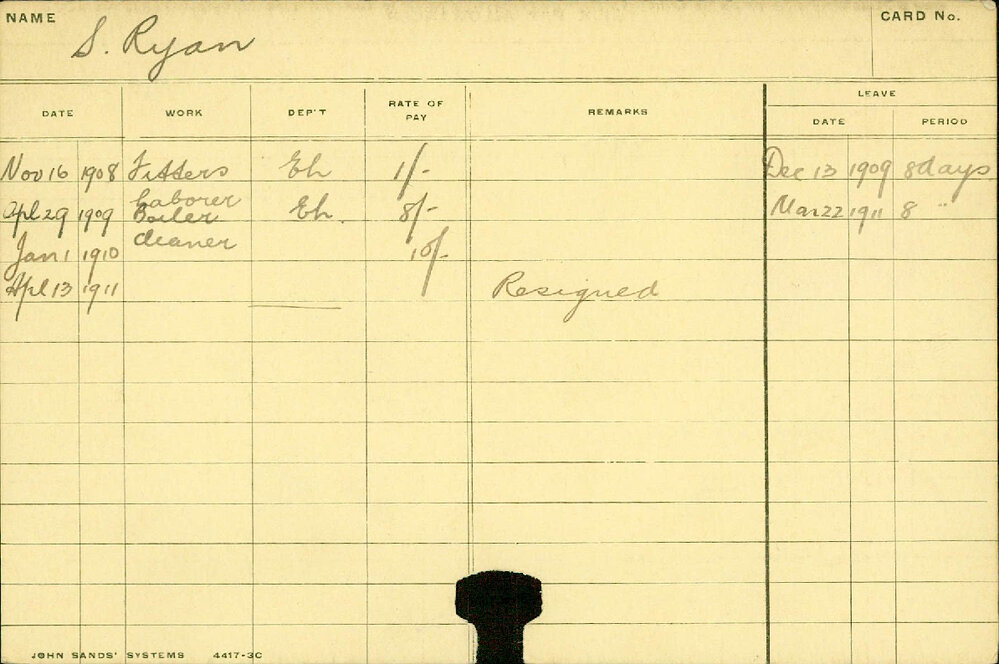 NAME S. Ryan CARD No.
DATE WORK DEP'T RATE OF PAY REMARKS LEAVE
DATE PERIOD
Nov 16 1908 Fitters Eh 1/- Dec 13 1909 8 days
Laborer
Apl 29 1909 Boiler Eh. 8/- Mar 22 1911 8 "
cleaner
Jan 1 1910 10/-
Apl 13 1911 Resigned
JOHN SANDS' SYSTEMS 4417-3C